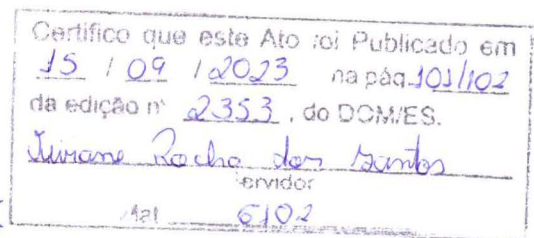 Certifico que este Ato foi Publicado em
15 / 09 / 2023 na pág. 101/102
da edição nº 2353, do DOM/ES.
Rocha dos Santos
Servidor
Mat 6102